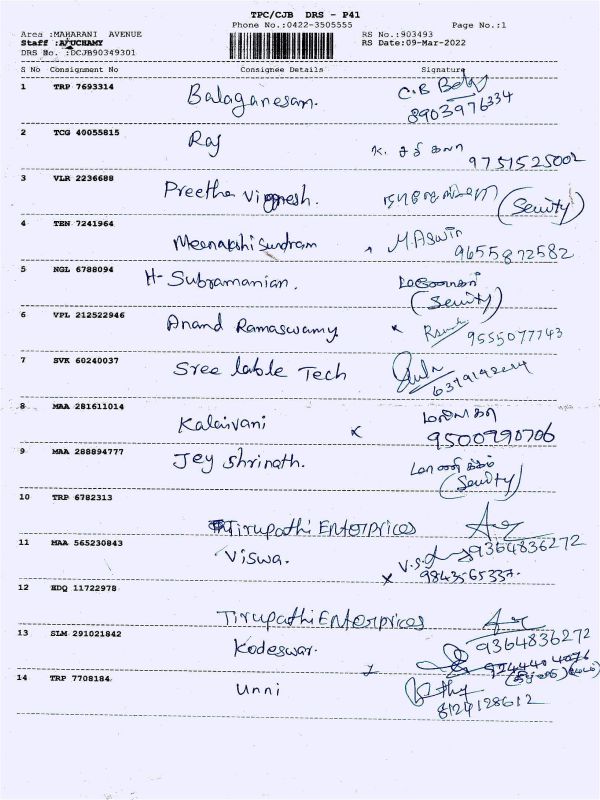 TPC/CJB DRS - P41
Phone No.:0422-3505555 Page No.:1
Area :MAHARANI AVENUE RS No.:903493
Staff :A/UCHAMY RS Date:09-Mar-2022
DRS No. :DCJB90349301
S No Consignment No Consignee Details Signature
1 TRP 7693314 Balaganesam. C.B
8903976334
2 TCG 40055815 Raj K. சசி கலா
9751525002
3 VLR 2236688 Preetha Vignesh. (Seuity)
4 TEN 7241964 Meenakshi Sundram M.Aswin
9655872582
5 NGL 6788094 H- Subramanian.
(Seuity)
6 VPL 212522946 Anand Ramaswamy. x 9555077743
7 SVK 60240037 Sree lable Tech
8 MAA 281611014 Kalaivani x
9500790706
9 MAA 288894777 Jey Shrinath. மாணிக்கம்
(Seuity)
10 TRP 6782313
Tirupathi Enterprices
11 MAA 565230843 Viswa. 9364836272
x 9843565337.
12 HDQ 11722978
Tirupathi Enterprices
13 SLM 291021842 Kodeswar. 9364836272
14 TRP 7708184 unni
8124128612